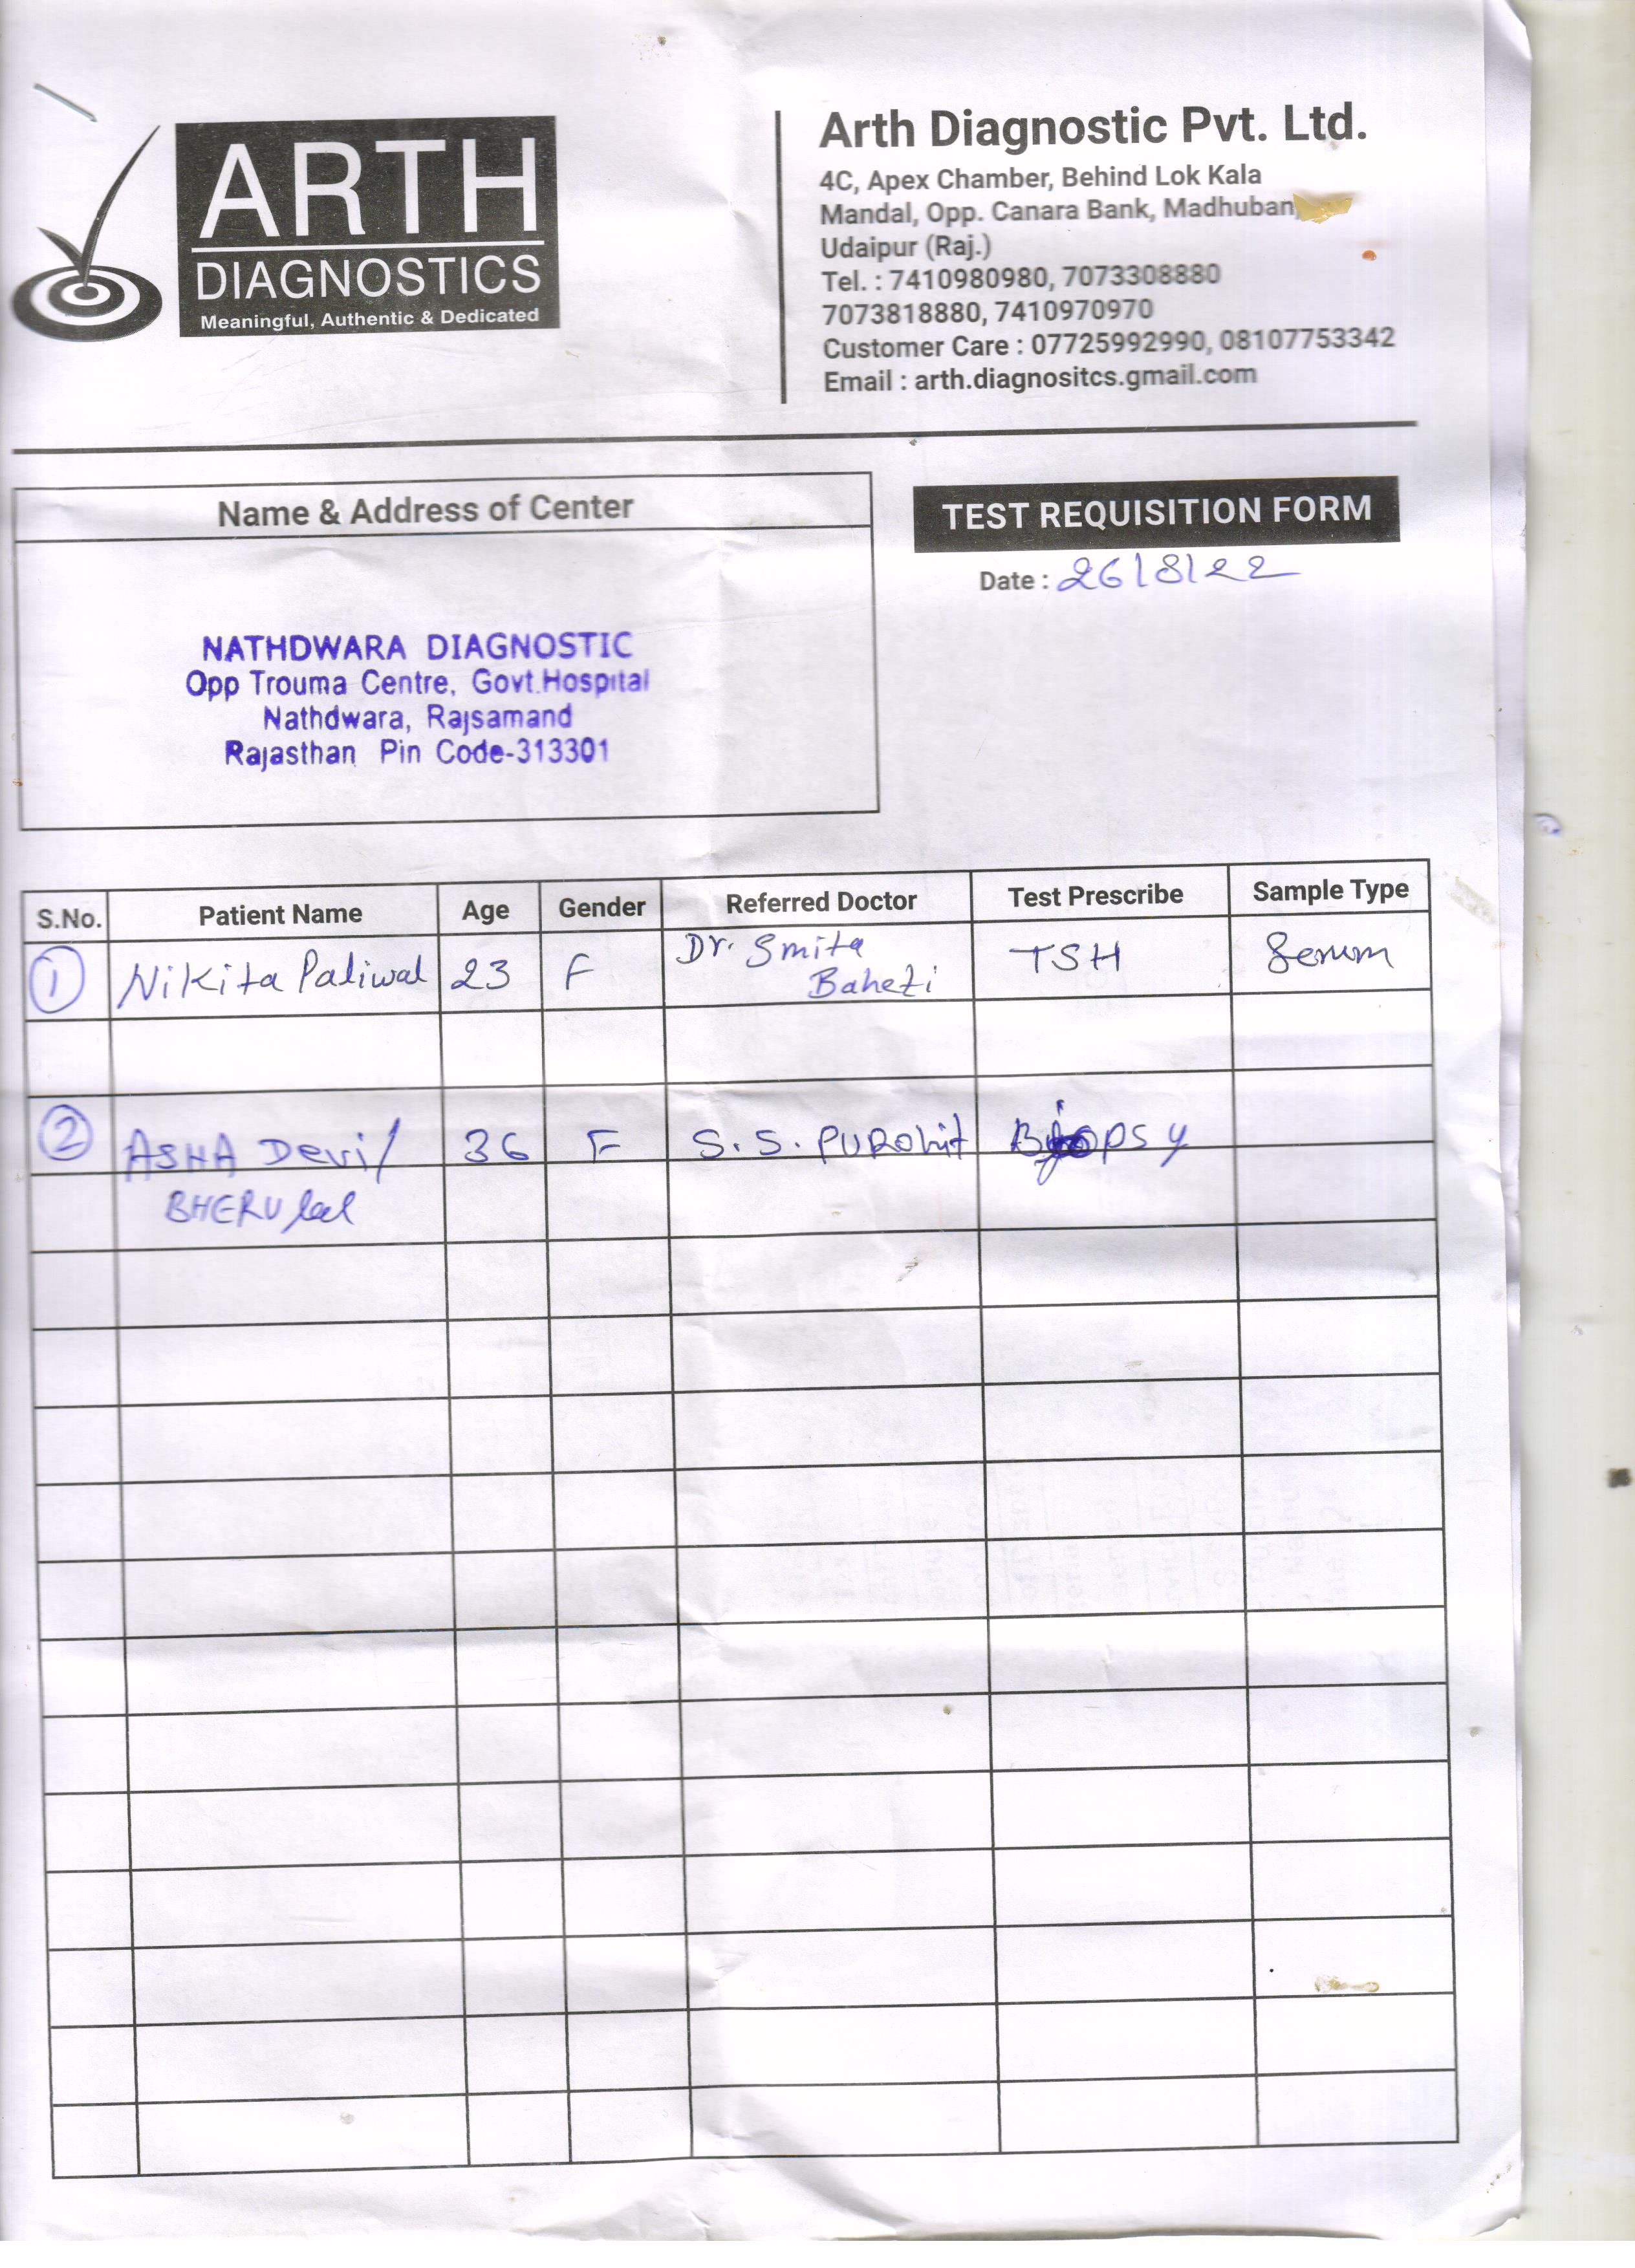 ARTH
DIAGNOSTICS
Meaningful, Authentic & Dedicated
Arth Diagnostic Pvt. Ltd.
4C, Apex Chamber, Behind Lok Kala
Mandal, Opp. Canara Bank, Madhuban,
Udaipur (Raj.)
Tel. : 7410980980, 7073308880
7073818880, 7410970970
Customer Care : 07725992990, 08107753342
Email : arth.diagnositcs.gmail.com
Name & Address of Center
TEST REQUISITION FORM
Date : 26/8/22
NATHDWARA DIAGNOSTIC
Opp Trouma Centre, Govt.Hospital
Nathdwara, Rajsamand
Rajasthan Pin Code-313301
S.No. Patient Name Age Gender Referred Doctor Test Prescribe Sample Type
1 Nikita Paliwal 23 F Dr. Smita Baheti TSH Serum
2 ASHA Devi/ 36 F S.S. PUROhit Biopsy
BHERU lal